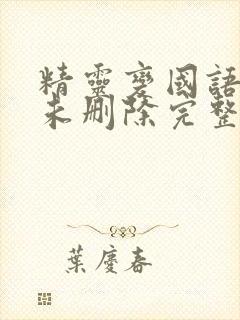 精靈變國語
未删除完整
葉慶春